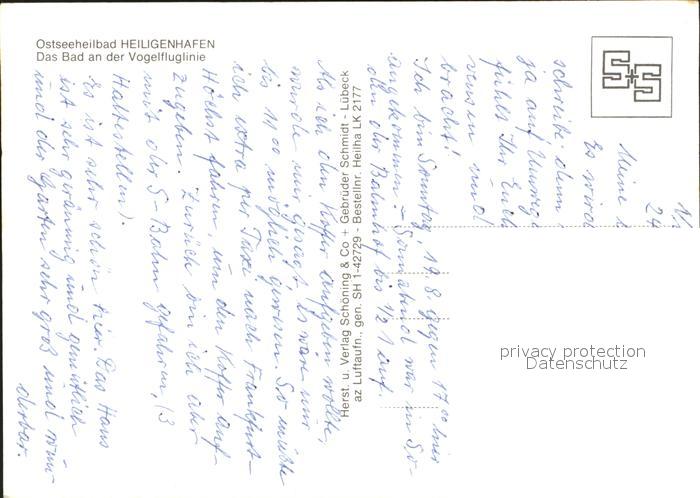 Ostseeheilbad HEILIGENHAFEN
Das Bad an der Vogelfluglinie
S+S
24
Meine
Es wird
schreibe denn
ja auf Umwege
fühlt Ihr Euch
bracht!
Ich bin Sonntag, 19.8. gegen 17.00 hier
angekommen. Sonnabend war in So-
den der Bahnhof bis 1/2 1 auf.
Als ich den Koffer aufgeben wollte,
wurde mir gesagt, es wäre nur
bis 11.00 möglich gewesen. So mußte
ich extra per Taxe nach Frankfurt-
Höchst fahren, um den Koffer auf-
zugeben. Zurück bin ich aber
mit der S-Bahn gefahren, (3
Haltestellen).
Es ist sehr schön hier. Das Haus
ist sehr geräumig und gemütlich
und der Garten sehr groß und wun-
derbar.
Herst. u. Verlag Schöning & Co + Gebrüder Schmidt - Lübeck
az Luftaufn., gen. SH 1-42729 - Bestellnr. Heilha LK 2177
privacy protection
Datenschutz